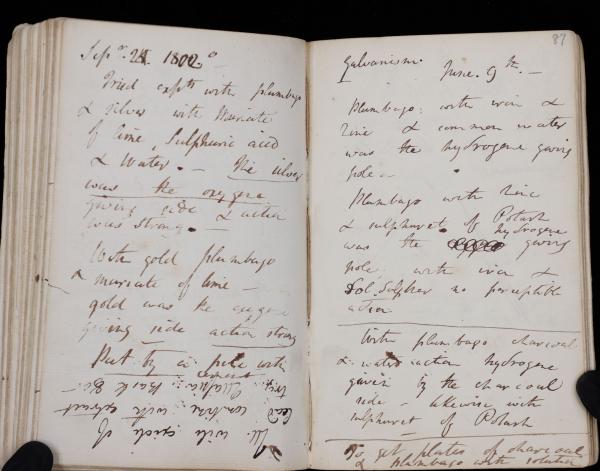 Sepr. 24. 1802.
Tried expts with plumbago
& silver with Muriate
of lime, Sulphuric acid
& Water. — The silver
was the oxygene
giving side & action
was strong. —
With gold plumbago
& muriate of lime —
gold was the oxygene
giving side action strong
Put by a pile with
lead
All with oxide of
87
Galvanism. June. 9th. —
Plumbago with iron &
zinc & common water
was the hydrogene giving
pole —
Plumbago with zinc
& sulphuret of Potash
was the hydrogene giving
pole with iron &
Sol. Sulphur no perceptible
action
With plumbago charcoal
& water action hydrogene
given by the charcoal
side likewise with
sulphuret of Potash
To get plates of charcoal
& plumbago with solution